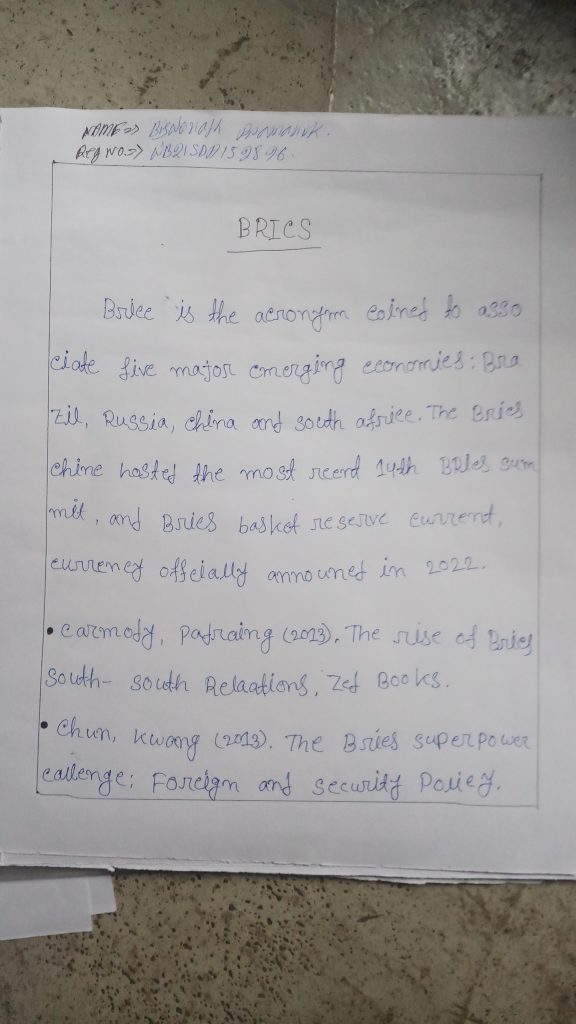 NAME=> Biswanath Pramanik.
Reg NO.=>
BRICS
Brice is the acronym coined to asso
ciate five major emerging economies: Bra
zil, Russia, china and south africe. The Brics
chine hosted the most reend 14th BRIcs sum
mit, and Brics basket reserve current,
currency offcially announed in 2022.
• carmody, Padraing (2013). The rise of Brics
South- south Relaations, Zed Books.
• Chun, Kwang (2013). The Brics superpower
callenge; Foreign and security Policy.